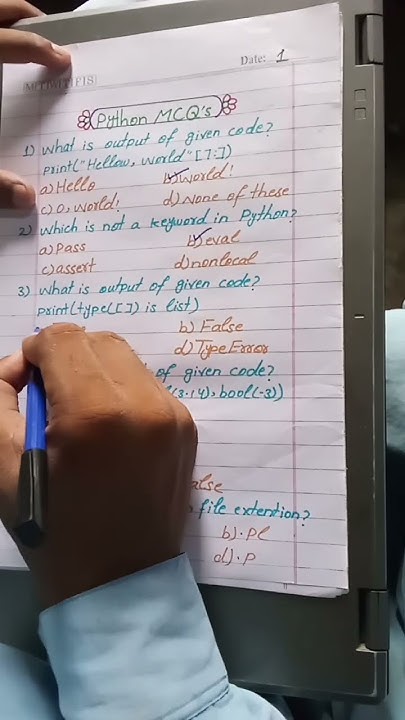 Date: 1
Python MCQ's
1) what is output of given code?
print("Hellow, world"[7:])
a) Hello b) world!
c) o, world! d) None of these
2) which is not a keyword in Python?
a) Pass b) eval
c) assert d) nonlocal
3) what is output of given code?
print(type([]) is list)
b) False
d) TypeError
of given code?
(3.14), bool(-3))
alse
file extention?
b) .pl
d) .p